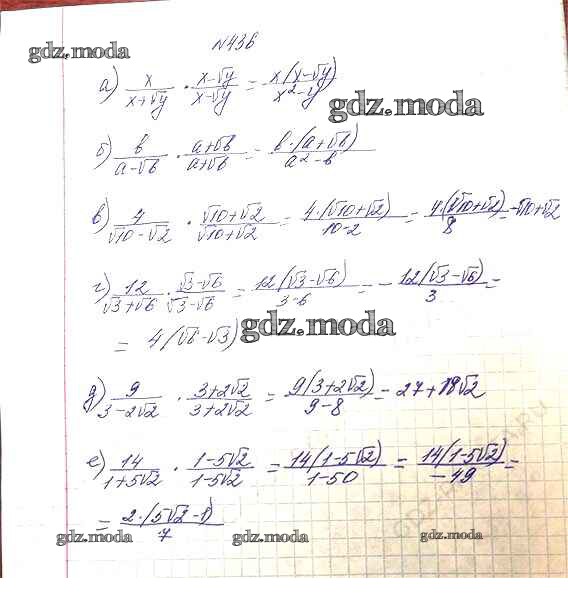 №436
gdz.moda
а) x/(x+√y) · (x-√y)/(x-√y) = x(x-√y)/(x²-y)
gdz.moda
б) b/(a-√b) · (a+√b)/(a+√b) = b·(a+√b)/(a²-b)
в) 4/(√10-√2) · (√10+√2)/(√10+√2) = 4·(√10+√2)/(10-2) = 4·(√10+√2)/8 = √10+√2
г) 12/(√3+√6) · (√3-√6)/(√3-√6) = 12(√3-√6)/(3-6) = -12(√3-√6)/3 =
= 4(√6-√3)
gdz.moda
д) 9/(3-2√2) · (3+2√2)/(3+2√2) = 9(3+2√2)/(9-8) = 27+18√2
е) 14/(1+5√2) · (1-5√2)/(1-5√2) = 14(1-5√2)/(1-50) = 14(1-5√2)/(-49) =
= 2·(5√2-1)/7
gdz.moda gdz.moda gdz.moda